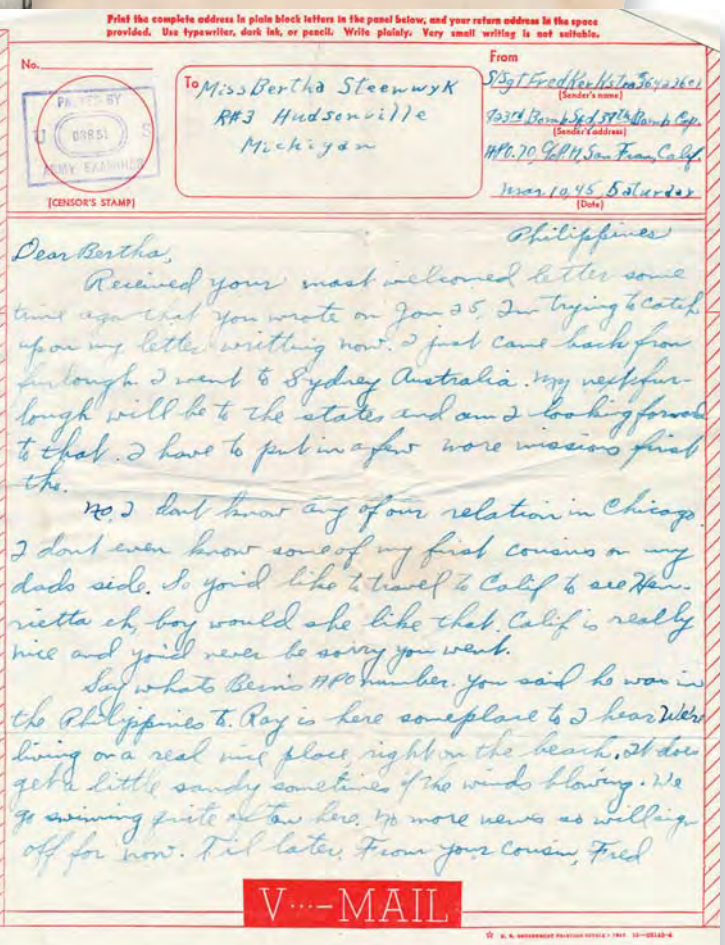 Print the complete address in plain block letters in the panel below, and your return address in the space
provided. Use typewriter, dark ink, or pencil. Write plainly. Very small writing is not suitable.
No.
PASSED BY
U S
ARMY EXAMINER
[CENSOR'S STAMP]
To Miss Bertha Steenwyk
R#3 Hudsonville
Michigan
From
S/Sgt Fred Kerkstra 36423601
(Sender's name)
823rd Bomb Sqd. 38th Bomb Grp.
(Sender's address)
APO. 70, % P.M, San Fran, Calif.
Mar 10, 45 Saturday
(Date)
Philippines
Dear Bertha,
Received your most welcomed letter some
time ago that you wrote on Jan 25, I'm trying to catch
upon my letter writting now. I just came back from
furlough. I went to Sydney Australia. My next fur-
lough will be to the states and am I looking forward
to that. I have to put in a few more missions first
tho.
No, I dont know any of our relation in Chicago.
I dont even know some of my first cousins on my
dads side. So you'd like to travel to Calif to see Hen-
rietta eh, boy would she like that. Calif is really
nice and you'd never be sorry you went.
Say whats Bern's APO number. You said he was in
the Philippines to. Ray is here someplace to I hear. We're
living on a real nice place, right on the beach. It does
get a little sandy sometimes if the winds blowing. We
go swimming quite often here. No more news so will sign
off for now. Til later, From your cousin, Fred
V···-MAIL